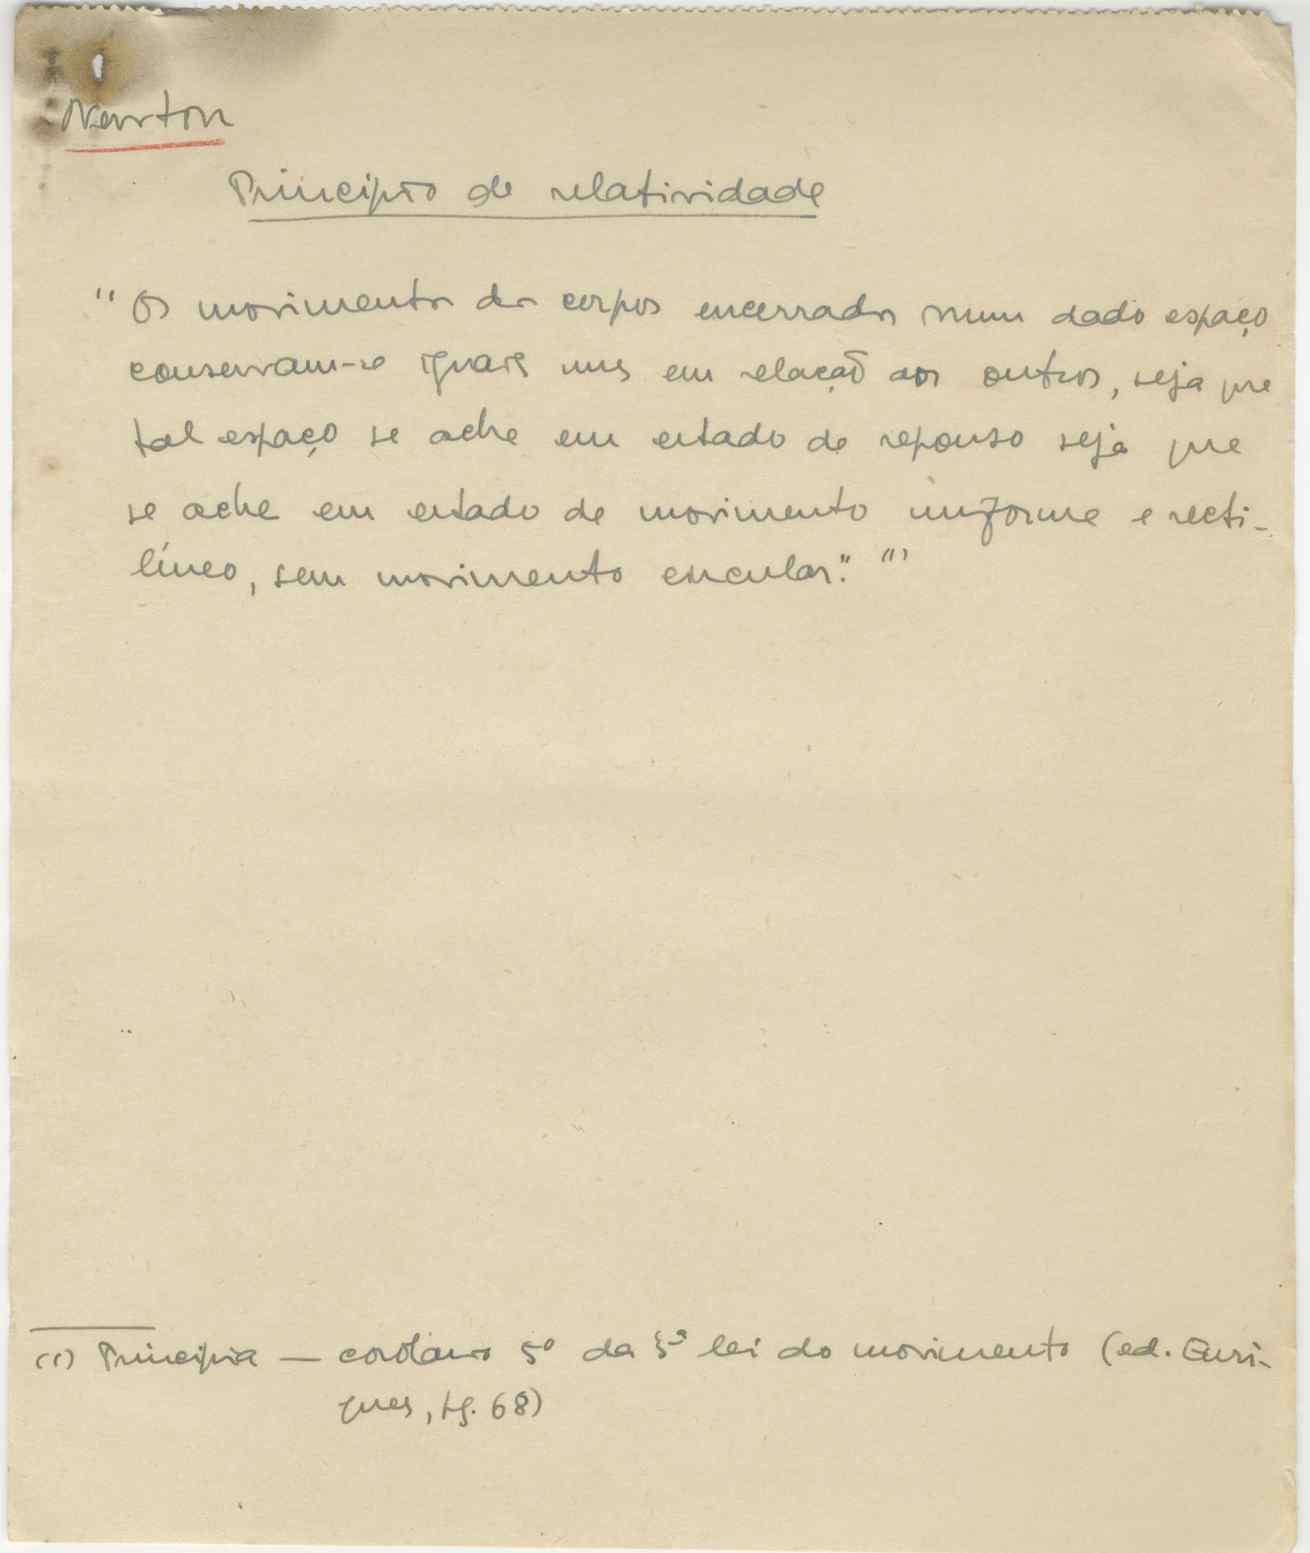 Newton
Princípio de relatividade
"Os movimentos dos corpos encerrados num dado espaço
conservam-se iguais uns em relação aos outros, seja que
tal espaço se ache em estado de repouso seja que
se ache em estado de movimento uniforme e recti-
líneo, sem movimento circular." (1)
(1) Principia — corolário 5º da lei do movimento (ed. Enri-
ques, pg. 68)